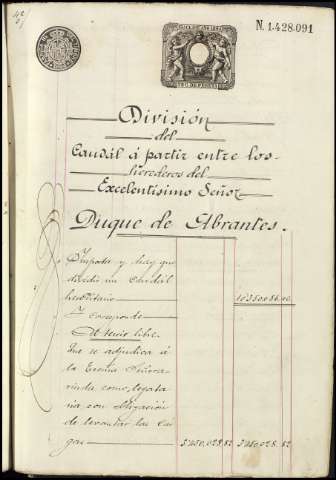 N. 1.428.091
División
del
Caudál á partir entre los
herederos del
Excelentísimo Señor
Duque de Abrantes.
Importa y hay que
dividir un caudál
hereditario
Y corresponde
Al tercio libre.
Que se adjudica á
la Excma Señora
viuda, como legata
ria con obligación
de levantar las car
gas 3.450.028,82 3.450.028,82